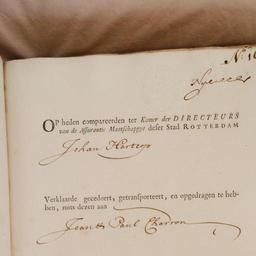 OP heden compareerden ter Kamer der DIRECTEURS
van de Assurantie Maatschappye deser Stad ROTTERDAM
Johan
Verklaarde gecedeert, getransporteert, en opgedragen te heb-
ben, mits dezen aan
Jean Paul Chadron